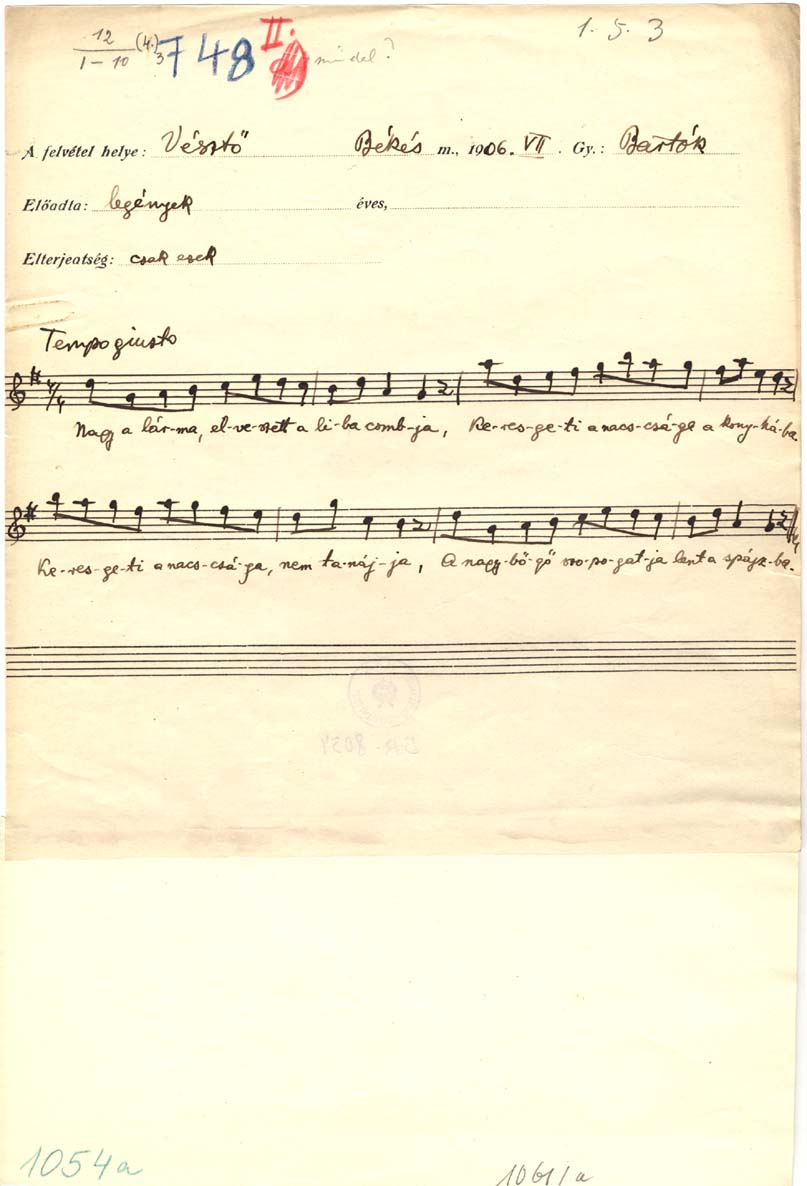 12 (4.) 748 II. műdal? 1. 5. 3
1–10 3
A felvétel helye: Vésztő Békés m., 1906. VII. Gy.: Bartók
Előadta: legények éves,
Elterjeatség: csak ezek
Tempo giusto
4/4
Nagy a lár-ma, el-ve-szett a li-ba comb-ja, Ke-res-ge-ti a nacs-csá-ga a kony-há-ba.
Ke-res-ge-ti a nacs-csá-ga, nem ta-náj-ja, A nagy-bő-gő ro-po-gat-ja lent a spájz-ba.
1054a 1061/a